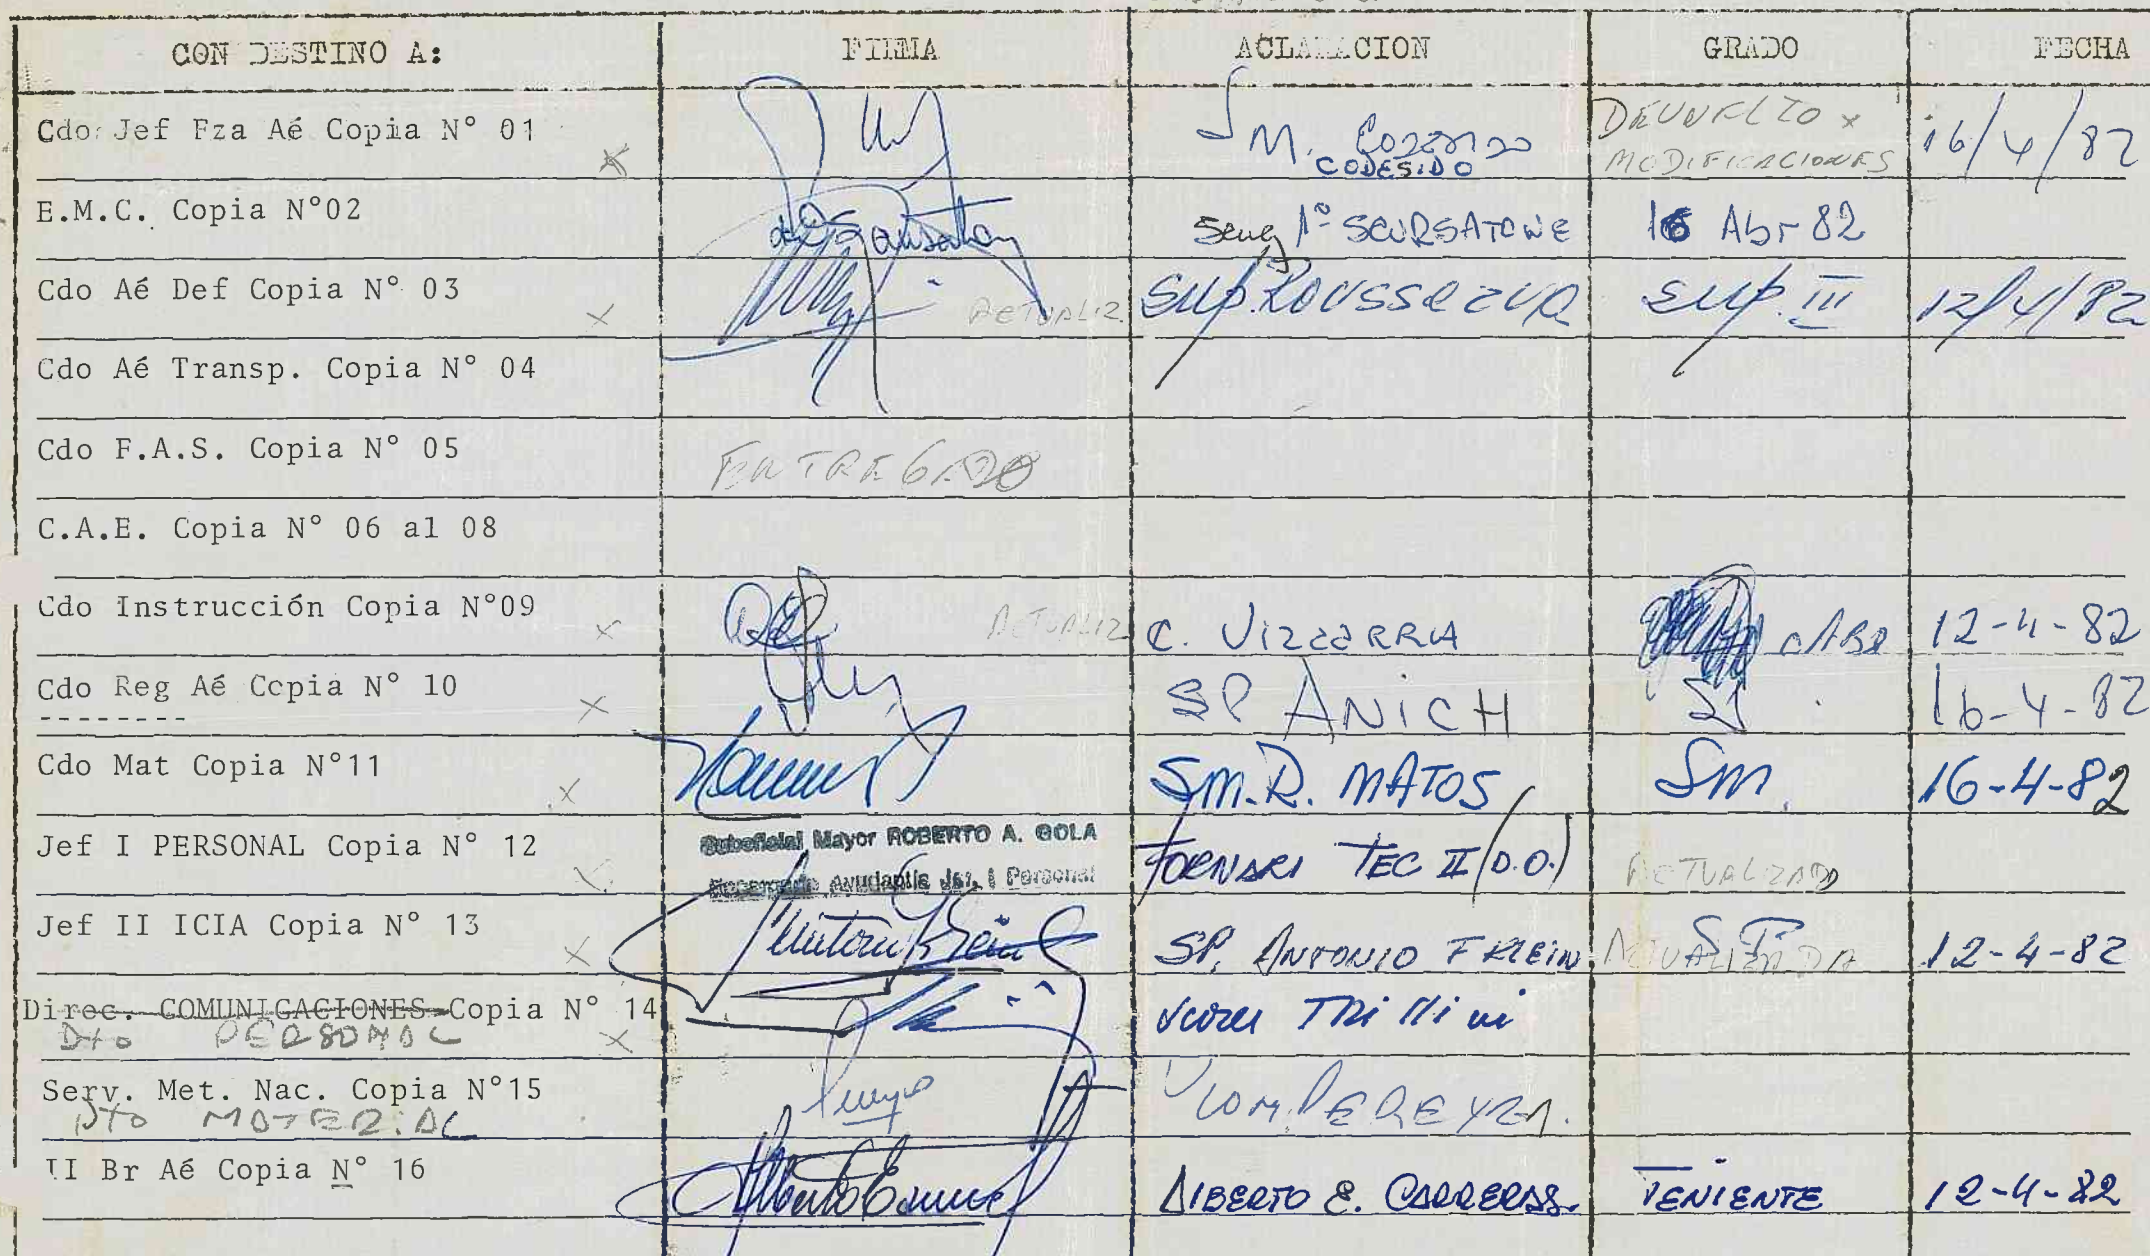 CON DESTINO A: FIRMA ACLARACION GRADO FECHA
Cdo Jef Fza Aé Copia N° 01 SM. CODESIDO DEVUELTO x MODIFICACIONES 16/4/82
E.M.C. Copia N°02 1° 16 Abr 82
Cdo Aé Def Copia N° 03 ACTUALIZ. Sup. Sup. III 12/4/82
Cdo Aé Transp. Copia N° 04
Cdo F.A.S. Copia N° 05 ENTREGADO
C.A.E. Copia N° 06 al 08
Cdo Instrucción Copia N°09 ACTUALIZ C. VIZCARRA 12-4-82
Cdo Reg Aé Copia N° 10 SP ANICH 16-4-82
Cdo Mat Copia N°11 SM. R. MATOS SM. 16-4-82
Jef I PERSONAL Copia N° 12 Suboficial Mayor ROBERTO A. GOLA FORNARI TEC II (D.O.) ACTUALIZADO
Encargado Ayudantía Jef. I Personal
Jef II ICIA Copia N° 13 SP. ANTONIO F KLEIN 12-4-82
Direc. COMUNICACIONES Copia N° 14
Dto PERSONAL
Serv. Met. Nac. Copia N°15 PEREYRA.
Dto MATERIAL
II Br Aé Copia N° 16 ALBERTO E. CARRERAS. TENIENTE 12-4-82